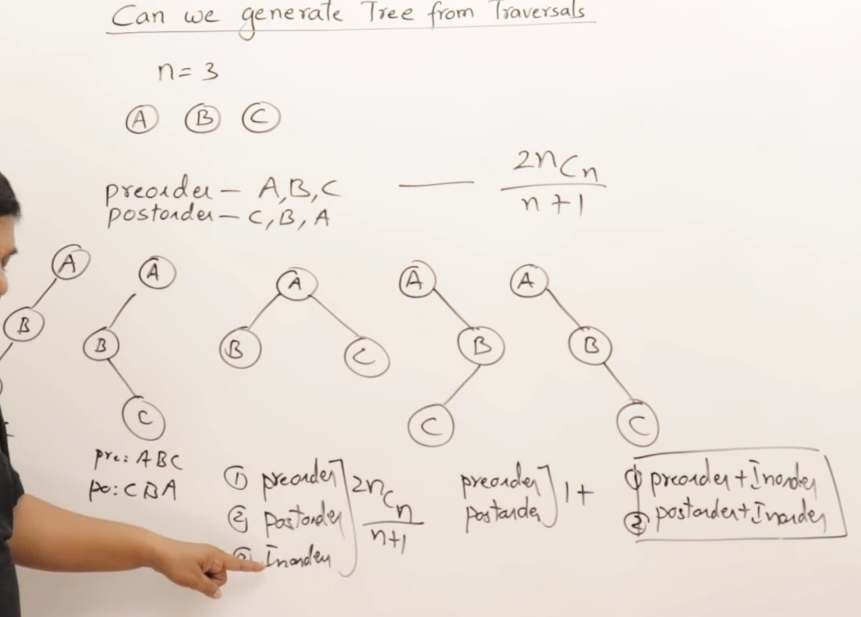 Can we generate Tree from Traversals
n = 3
A B C
preorder — A, B, C —— 2nCn / n+1
postorder — C, B, A
A A A A A
B B B C B B
C C C
pre: ABC
po: CBA
① preorder ] 2nCn / n+1
② postorder
③ Inorder
preorder ] 1+
postorder
① preorder + Inorder
② postorder + Inorder